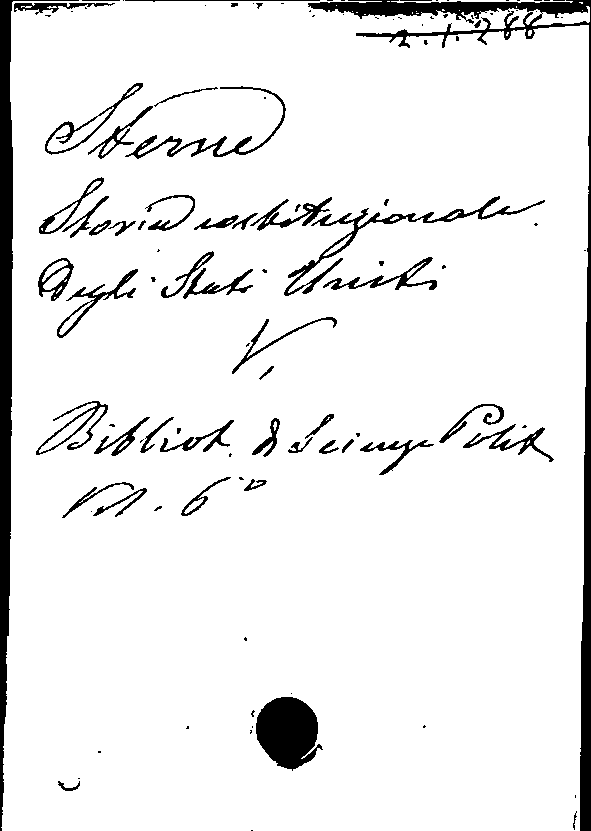 2.1.288
Sterne
Storia costituzionale
degli Stati Uniti
V.
Bibliot. di Scienze Polit
Vol. 6º